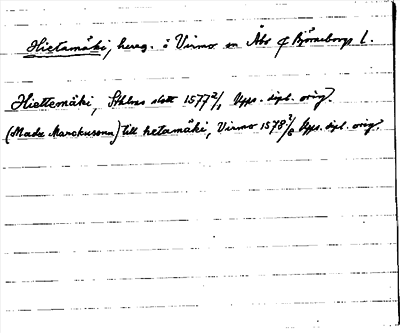 Hietamäki, hereg. i Virmo sn Åbo o Björneborgs l.
Hiettemäki, Sthlms slott 1577 2/1 Upps. dipl. orig.
(Mads Marckusson) till hetamäki, Virmo 1578 2/6 Upps. dipl. orig.